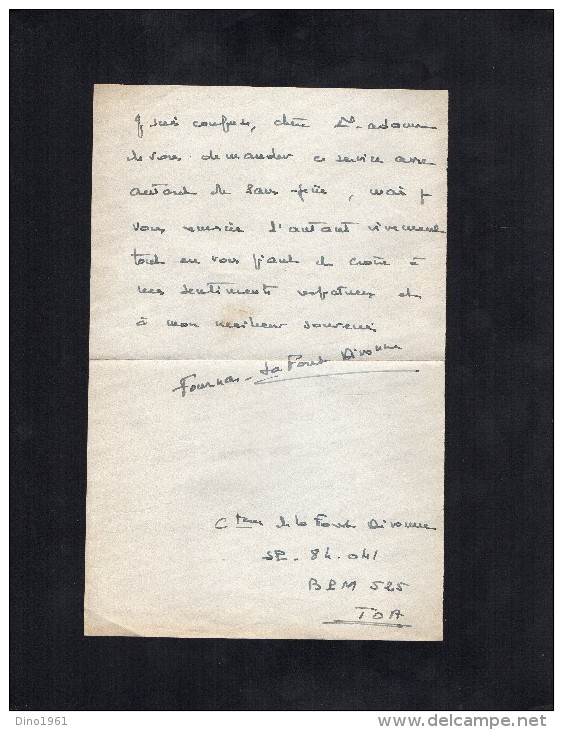 Je suis confuse, chère Madame
de vous demander ce service avec
autant de sans-gêne, mais je
vous remercie d'autant vivement
tout en vous priant de croire à
mes sentiments respectueux et
à mon meilleur souvenir
Fournas - La Forest Divonne
Ctesse de la Forest Divonne
SP - 84.041
BPM 525
TOA
Dino1961
delcampe.net